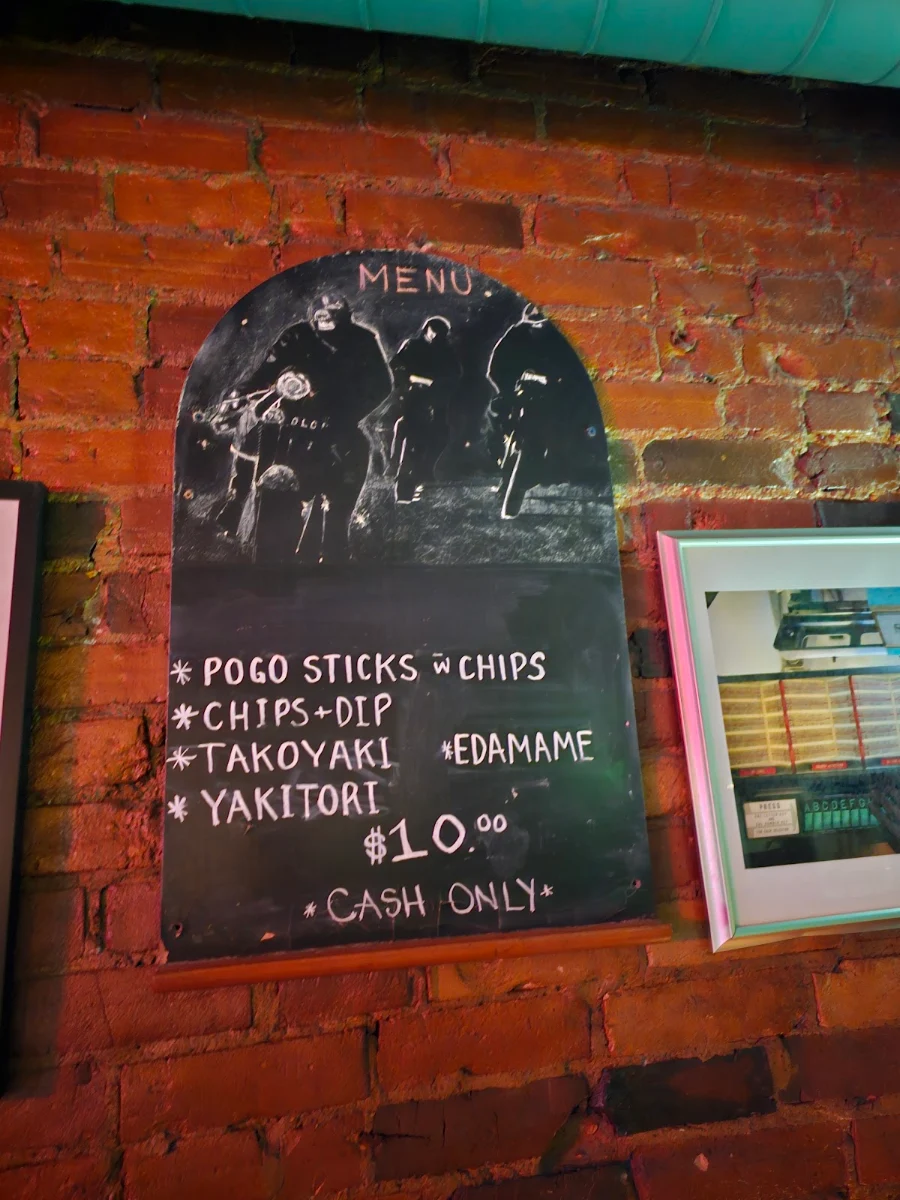 MENU
* POGO STICKS w̄ CHIPS
* CHIPS+DIP
* TAKOYAKI *EDAMAME
* YAKITORI
$10.00
*CASH ONLY*
PRESS
ABCDEFG